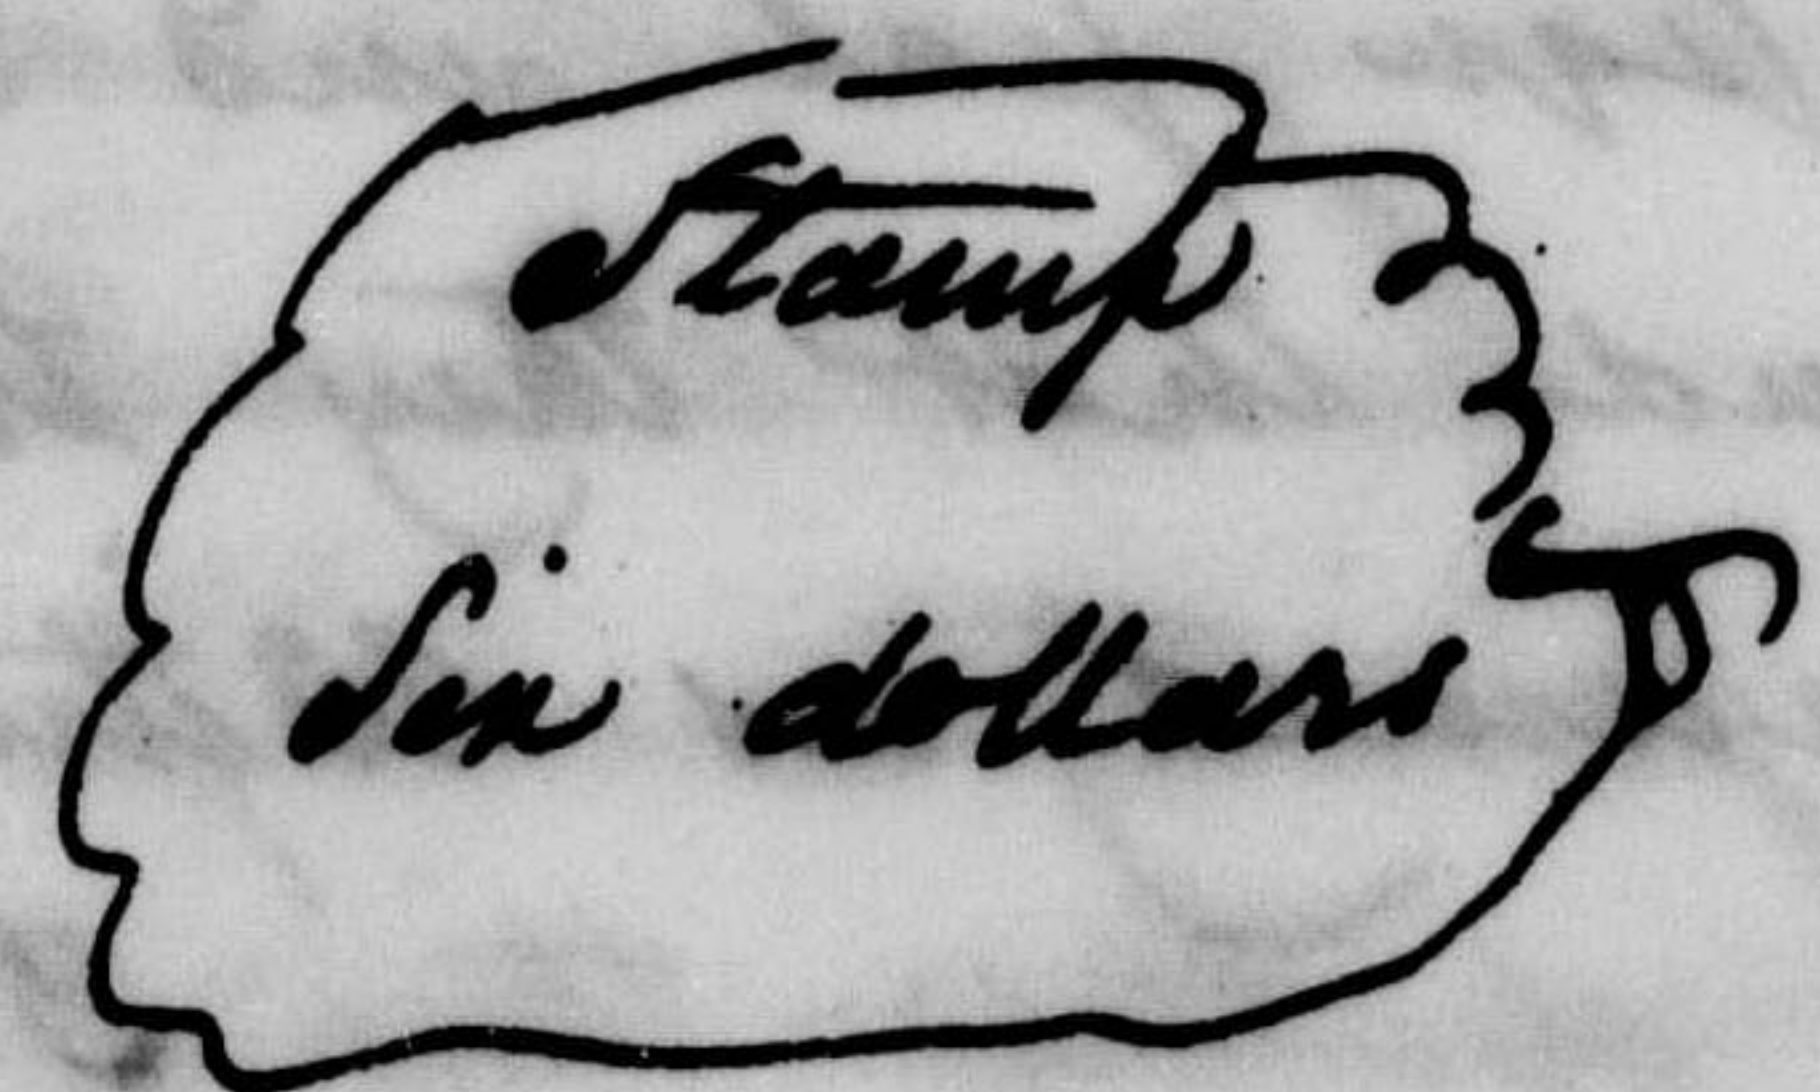 Stamp
Six dollars